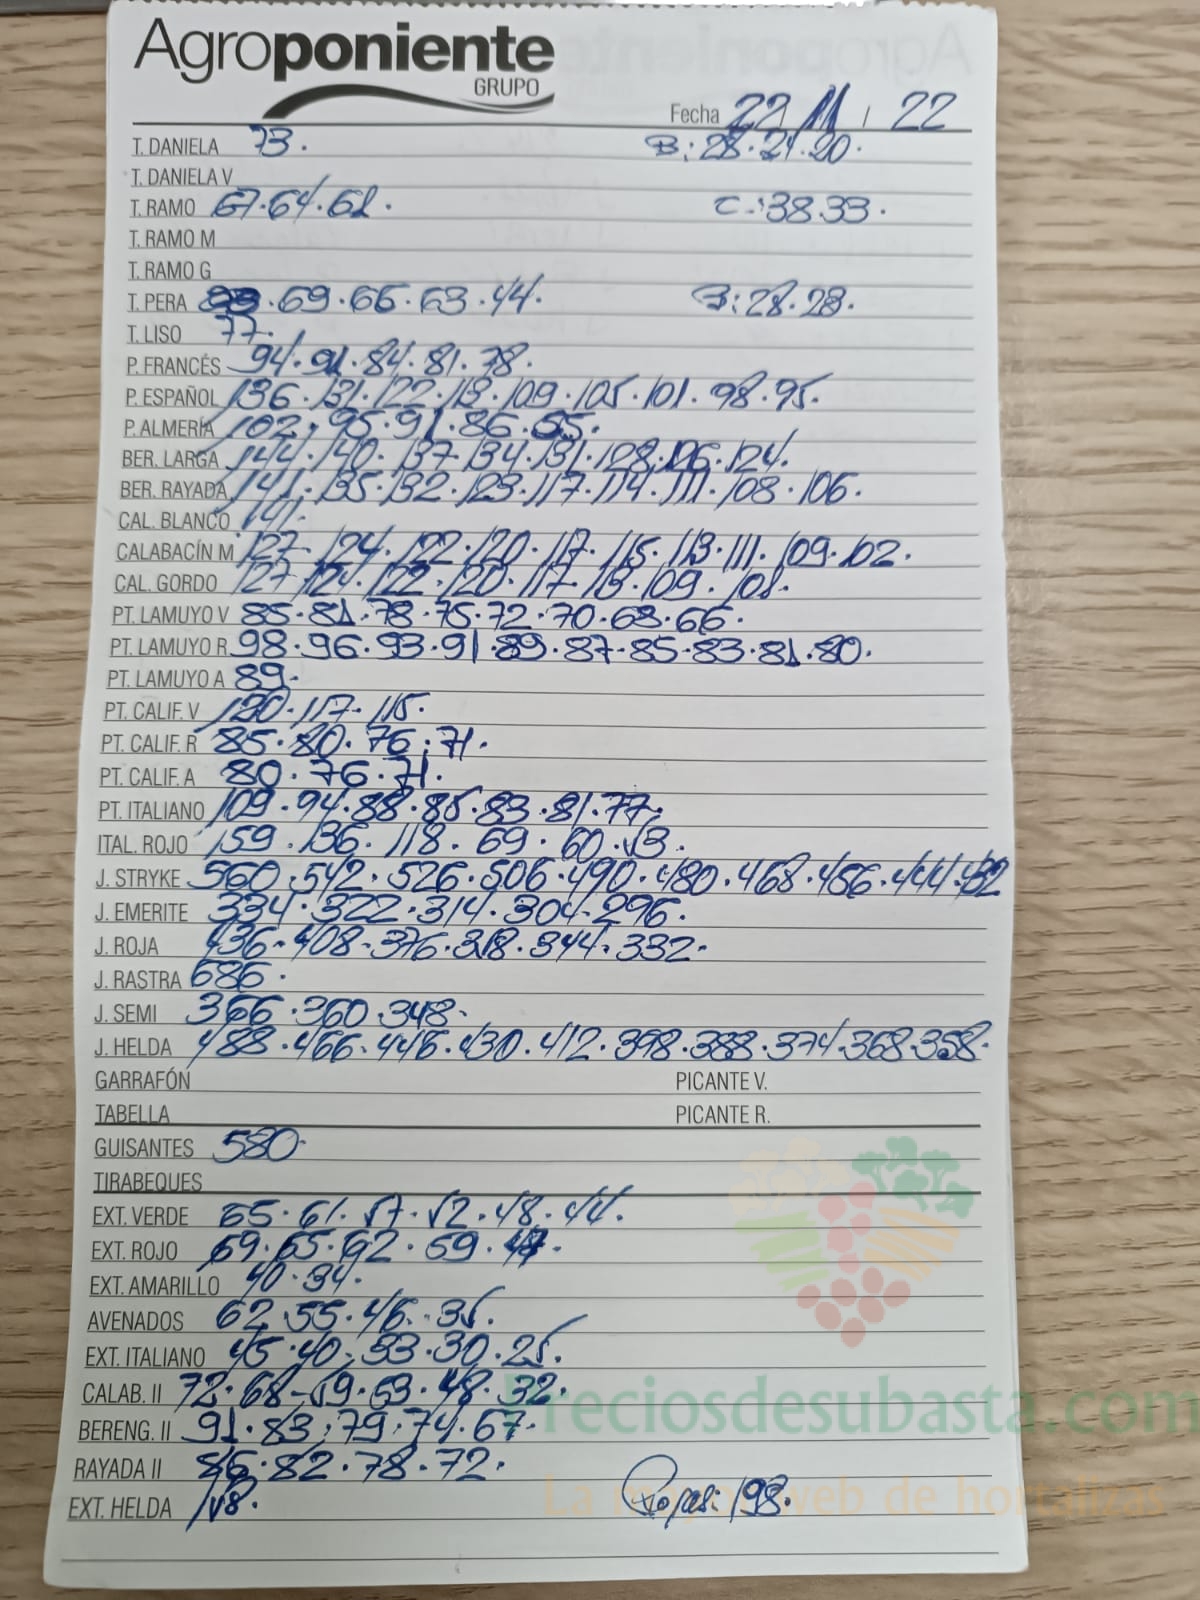 Agroponiente
GRUPO
Fecha 22/11/22
T. DANIELA 73. B: 28.24.20.
T. DANIELA V
T. RAMO 67.64.62. C: 38.33.
T. RAMO M
T. RAMO G
T. PERA .69.66.63.44. B: 28.23.
T. LISO 77.
P. FRANCÉS 94.91.84.81.78.
P. ESPAÑOL 136.131.122.113.109.105.101.98.95.
P. ALMERÍA 102.95.91.86.55.
BER. LARGA 144.140.137.134.131.128.126.124.
BER. RAYADA 141.135.132.123.117.114.111.108.106.
CAL. BLANCO 141.
CALABACÍN M 127.124.122.120.117.115.113.111.109.102.
CAL. GORDO 127.124.122.120.117.113.109.101.
PT. LAMUYO V 85.81.78.75.72.70.68.66.
PT. LAMUYO R 98.96.93.91.89.87.85.83.81.80.
PT. LAMUYO A 89.
PT. CALIF. V 120.117.115.
PT. CALIF. R 85.80.76.71.
PT. CALIF. A 80.76.71.
PT. ITALIANO 109.94.88.85.83.81.77.
ITAL. ROJO 159.136.118.69.60.53.
J. STRYKE 560.542.526.506.490.480.468.456.444.432
J. EMERITE 334.322.314.304.296.
J. ROJA 436.408.376.344.332.
J. RASTRA 686.
J. SEMI 366.360.348.
J. HELDA 488.466.446.430.412.398.388.374.368.358.
GARRAFÓN PICANTE V.
TABELLA PICANTE R.
GUISANTES 580.
TIRABEQUES
EXT. VERDE 65.61.57.52.48.44.
EXT. ROJO 69.65.62.59.
EXT. AMARILLO 40.34.
AVENADOS 62.55.46.35.
EXT. ITALIANO 45.40.33.30.25.
CALAB. II 72.68.59.53.48.32.
Preciosdesubasta.com
BERENG. II 91.83.79.74.67.
RAYADA II 86.82.78.72.
EXT. HELDA 198.
La mayor web de hortalizas